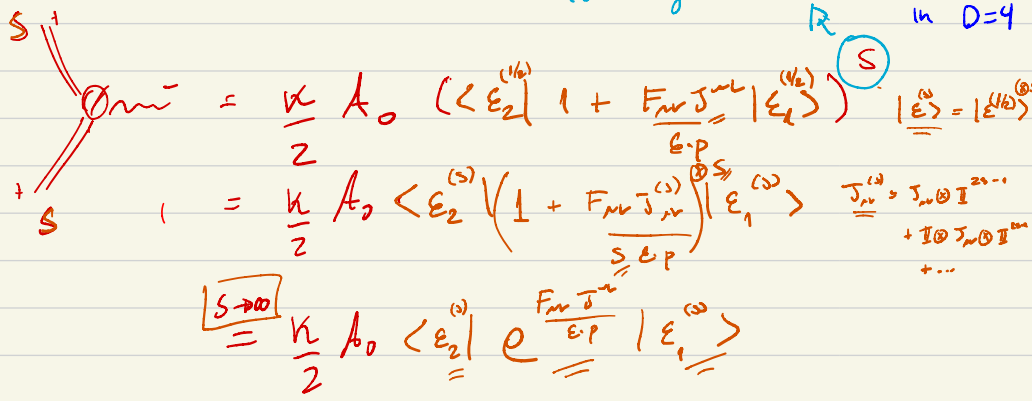 R in D=4
S + − = κ/2 A₀ (⟨ε₂^(1/2)| 1 + F_μν J^μν/ε·p |ε₁^(1/2)⟩)^S |ε^(s)⟩ = |ε^(1/2)⟩^⊗
+ S = κ/2 A₀ ⟨ε₂^(s)|(1 + F_μν J_μν^(s)/S ε·p)^⊗S |ε₁^(s)⟩ J_μν^(s) = J_μν ⊗ I^2s-1
+ I ⊗ J_μν ⊗ I
+ ...
S→∞
= κ/2 A₀ ⟨ε₂^(s)| e^(F_μν J^μν/ε·p) |ε₁^(s)⟩